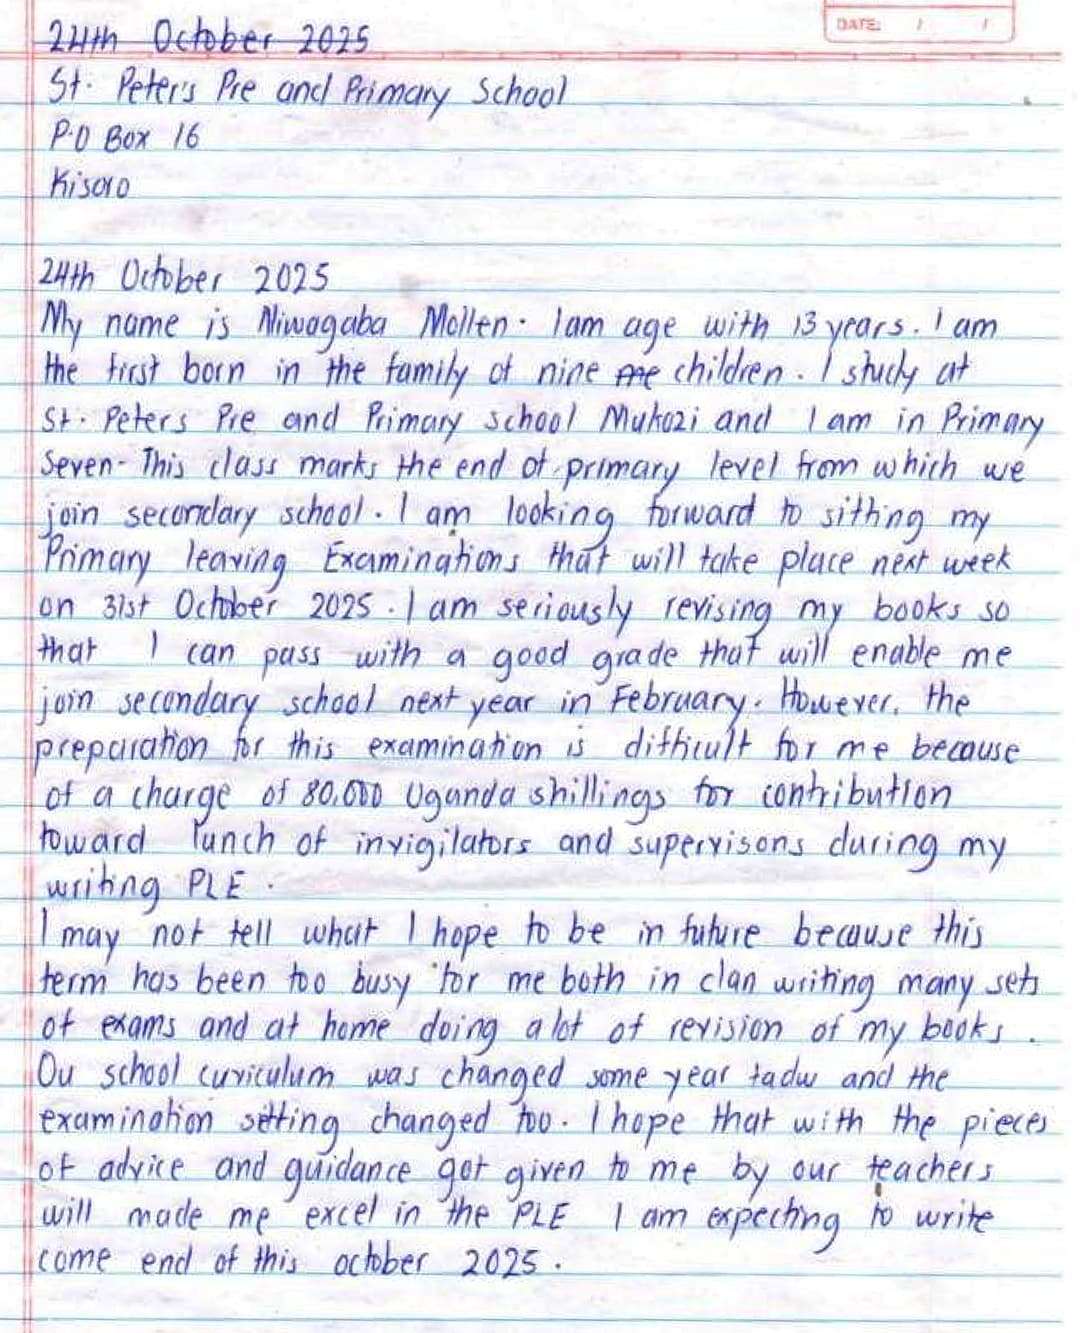 24th October 2025
DATE: / /
St. Peter's Pre and Primary School
P.O Box 16
Kisoro
24th October 2025
My name is Niwagaba Mollen. I am age with 13 years. I am
the first born in the family of nine me children. I study at
St. Peters Pre and Primary school Mukozi and I am in Primary
Seven. This class marks the end of primary level from which we
join secondary school. I am looking forward to sitting my
Primary leaving Examinations that will take place next week
on 31st October 2025. I am seriously revising my books so
that I can pass with a good grade that will enable me
join secondary school next year in February. However, the
preparation for this examination is difficult for me because
of a charge of 80,000 Uganda shillings for contribution
toward lunch of invigilators and supervisons during my
writing PLE.
I may not tell what I hope to be in future because this
term has been too busy for me both in clan writing many sets
of exams and at home doing a lot of revision of my books.
Ou school curiculum was changed some year tadw and the
examination setting changed too. I hope that with the pieces
of advice and guidance got given to me by our teachers
will made me excel in the PLE I am expecting to write
come end of this october 2025.